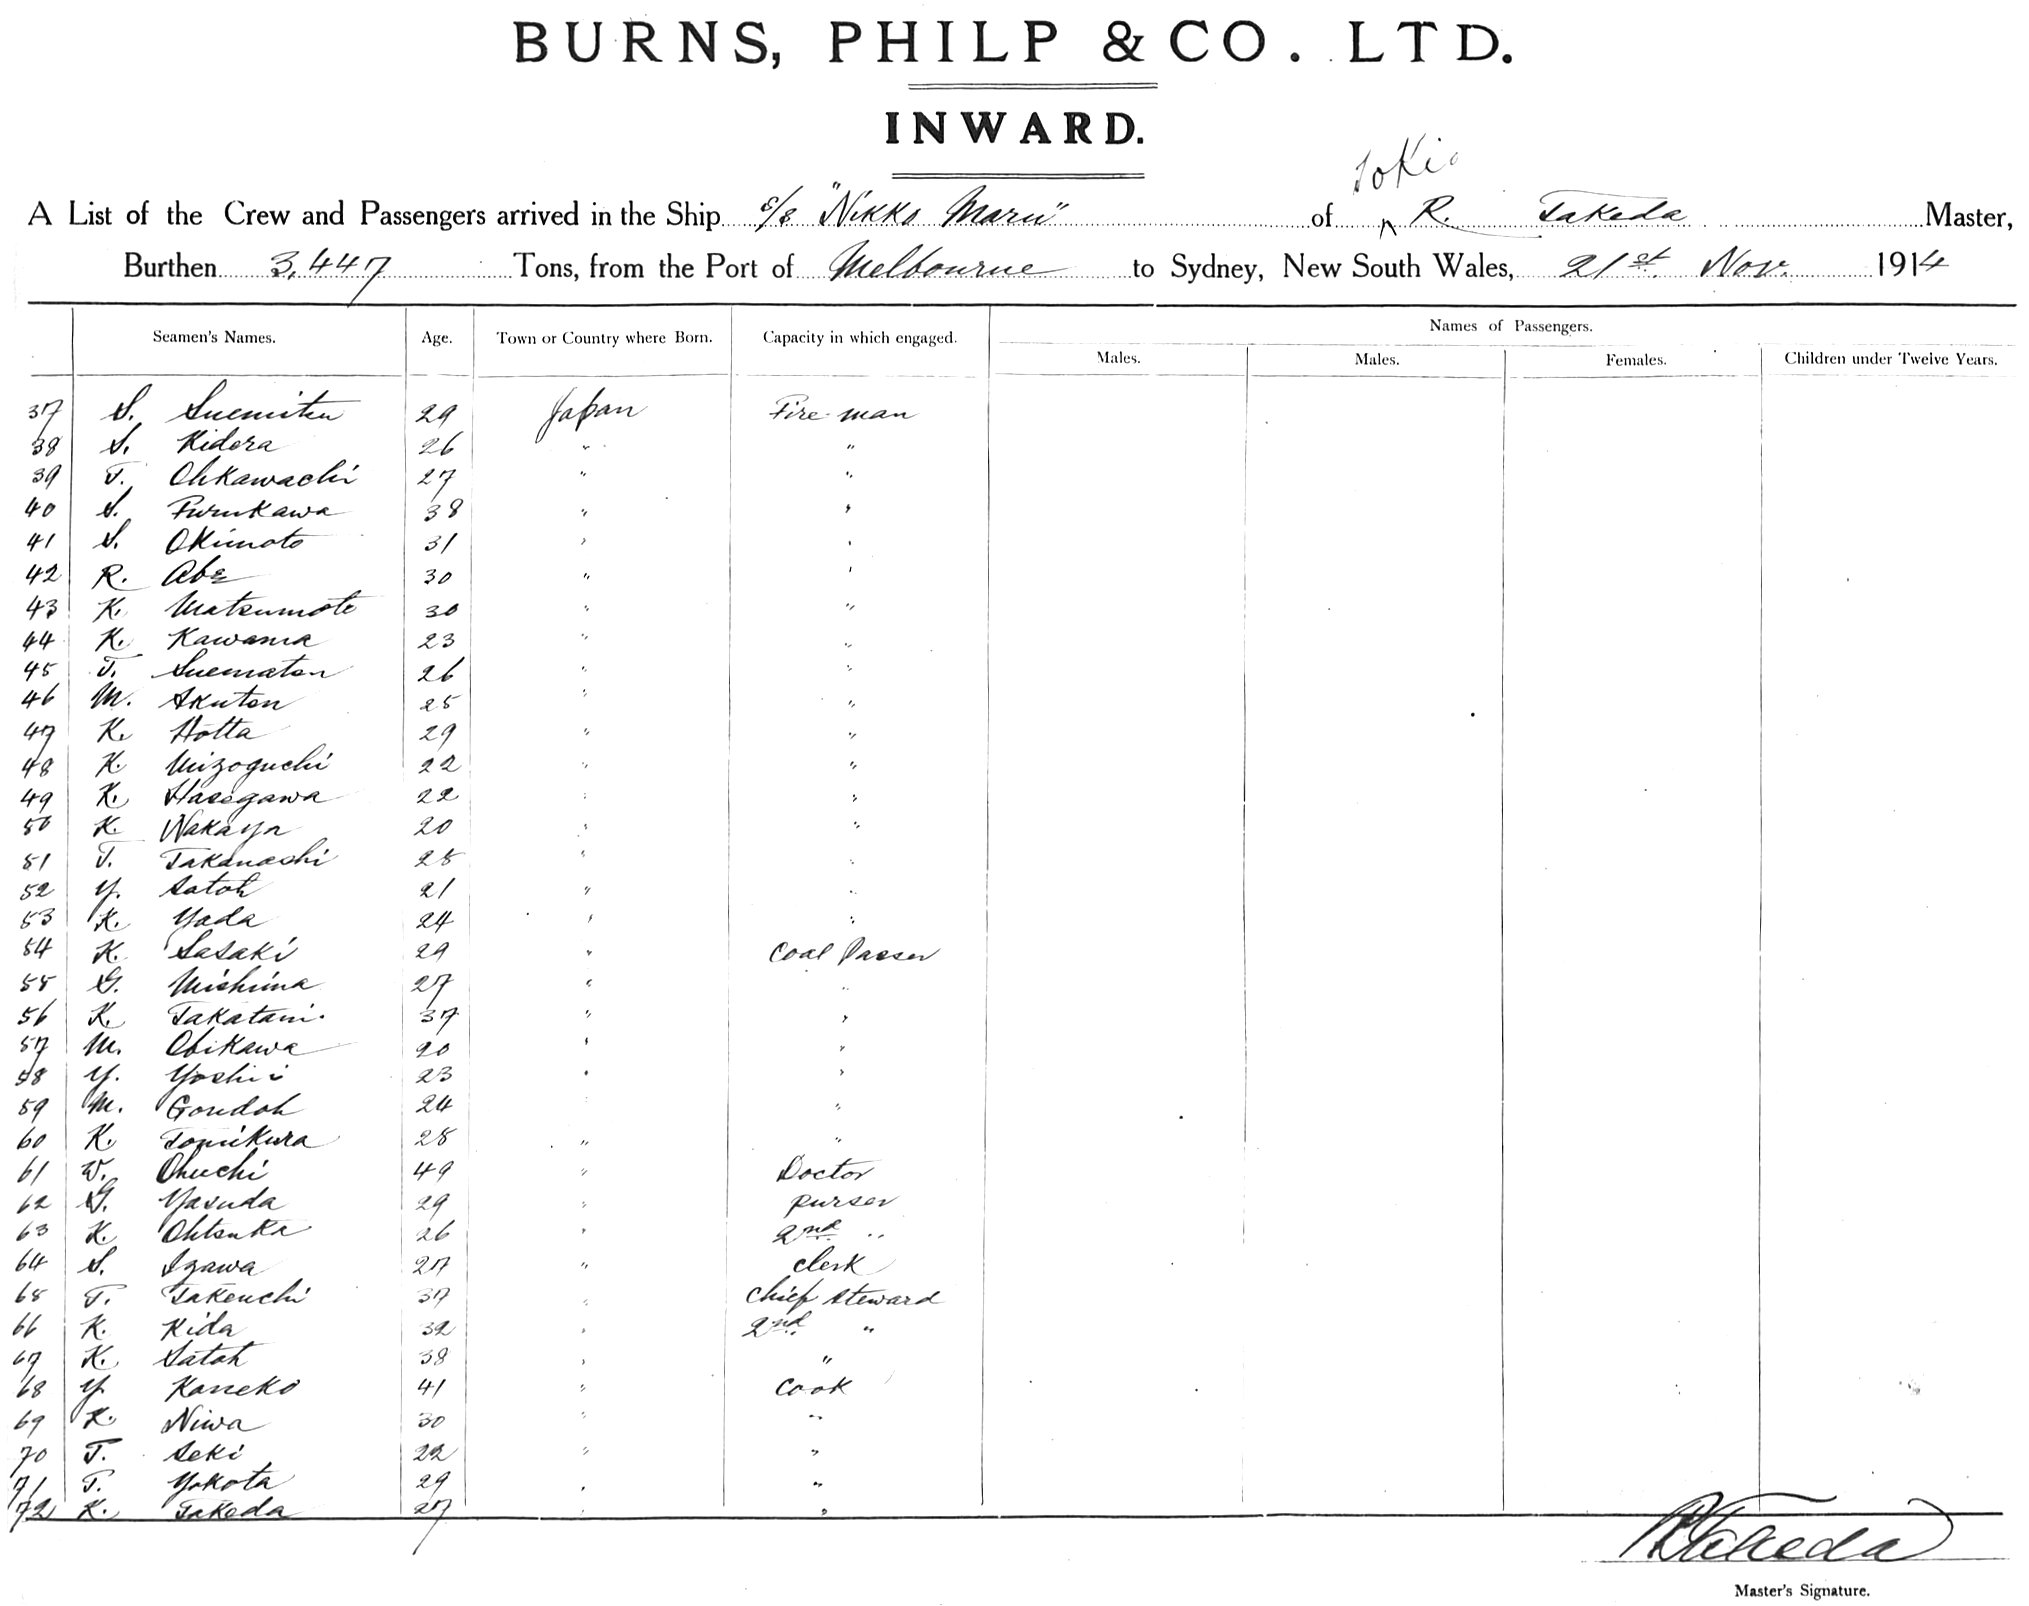 BURNS, PHILP & CO. LTD.
INWARD.
Tokio
A List of the Crew and Passengers arrived in the Ship s/s "Nikko Maru" of ^ R. Takeda Master,
Burthen 3,447 Tons, from the Port of Melbourne to Sydney, New South Wales, 21st Nov. 1914
Names of Passengers.
Seamen's Names. Age. Town or Country where Born. Capacity in which engaged. Males. Males. Females. Children under Twelve Years.
37 S. Suemitsu 29 Japan Fire man
38 S. Kidera 26 " "
39 T. Ohkawachi 27 " "
40 S. Furukawa 38 " "
41 S. Okimoto 31 " "
42 R. Abe 30 " "
43 K. Matsumoto 30 " "
44 K. Kawama 23 " "
45 T. Suematsu 26 " "
46 M. Akutsu 25 " "
47 K. Hotta 29 " "
48 K. Mizoguchi 22 " "
49 K. Hasegawa 22 " "
50 K. Nakaya 20 " "
51 T. Takanashi 25 " "
52 Y. Satoh 21 " "
53 K. Yada 24 " "
54 K. Sasaki 29 " Coal Passer
55 G. Mishima 27 " "
56 K. Takatani 37 " "
57 M. Obikawa 20 " "
58 Y. Yoshii 23 " "
59 M. Gondoh 24 " "
60 K. Tomikura 28 " "
61 W. Ohuchi 49 " Doctor
62 G. Yasuda 29 " purser
63 K. Ohtsuka 26 " 2nd "
64 S. Izawa 27 " clerk
65 T. Takeuchi 37 " Chief steward
66 K. Kida 32 " 2nd "
67 K. Satoh 38 " "
68 Y. Kaneko 41 " Cook
69 K. Niwa 30 " "
70 T. Seki 22 " "
71 T. Yokota 29 " "
72 K. Takeda 27 " "
R Takeda
Master's Signature.